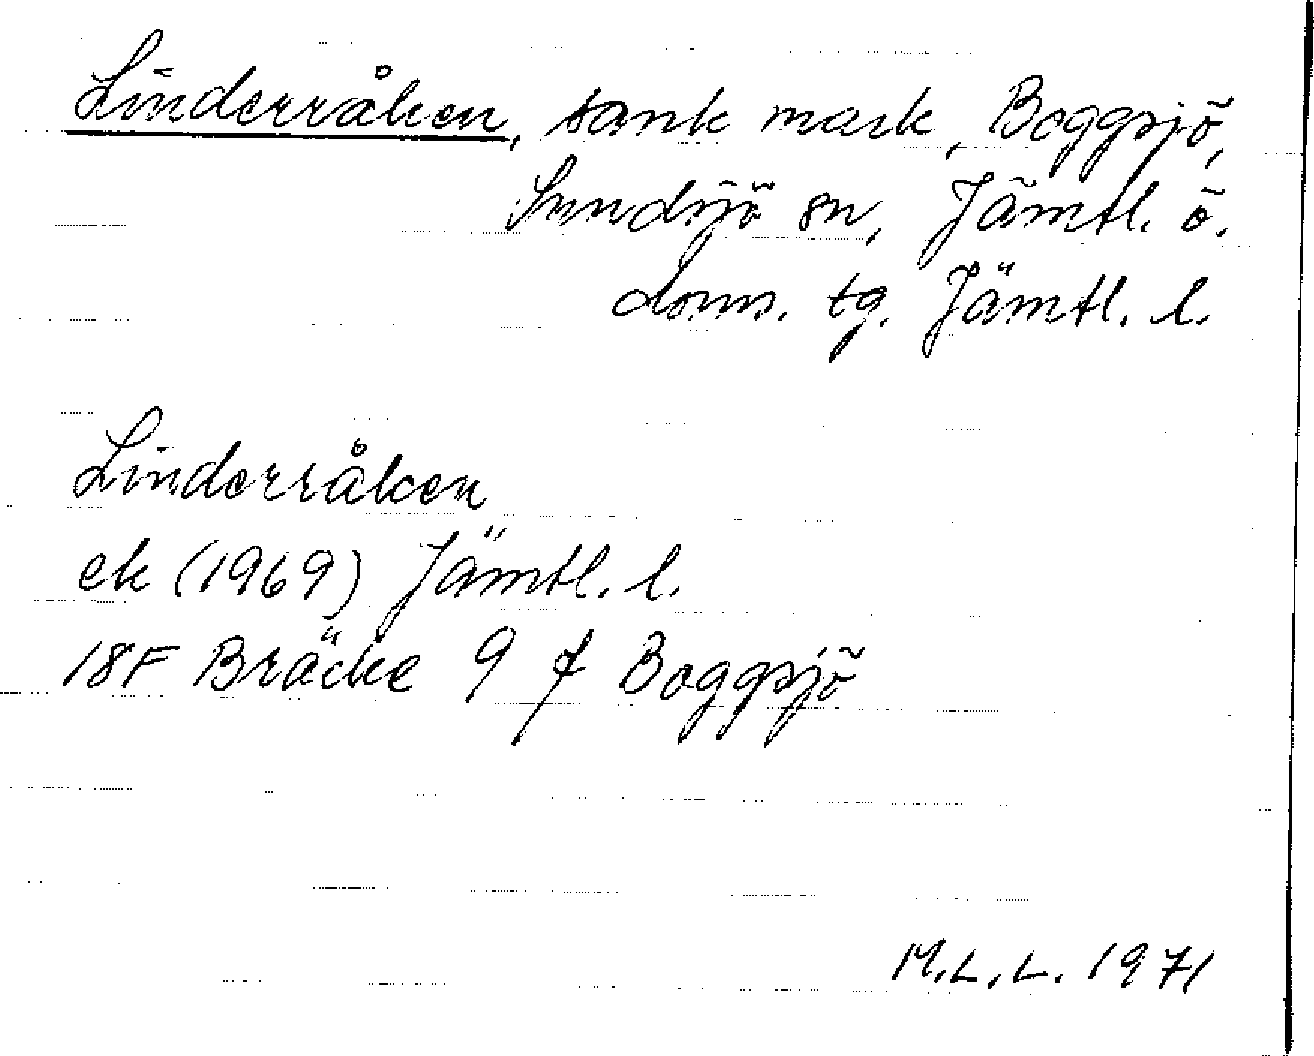 Linderråken, sank mark, Boggsjö,
Sundsjö sn, Jämtl. ö.
doms. tg. Jämtl. l.
Linderråken
ek (1969) Jämtl. l.
18F Bräcke 9 f Boggsjö
M.L.L. 1971